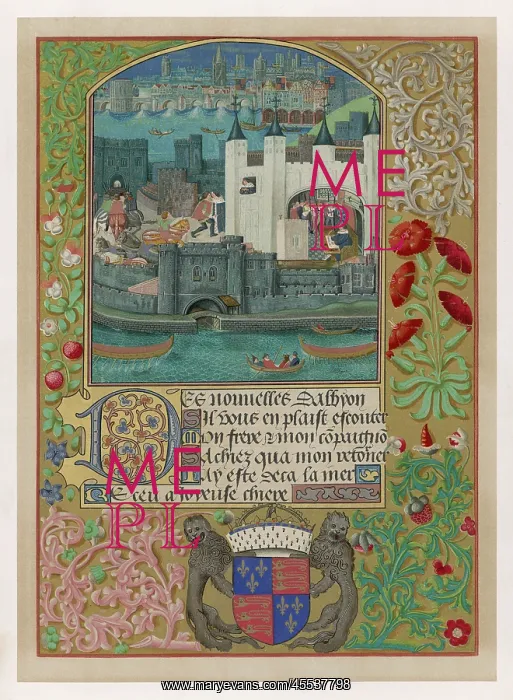 ME
PL
Des nouuelles Dalbyon
Sil vous en plaist escouter
Mon frere & mon cōpaignō
Sachiez qua mon retorner
Jay este deca la mer
ME
PL
www.maryevans.com/45537798